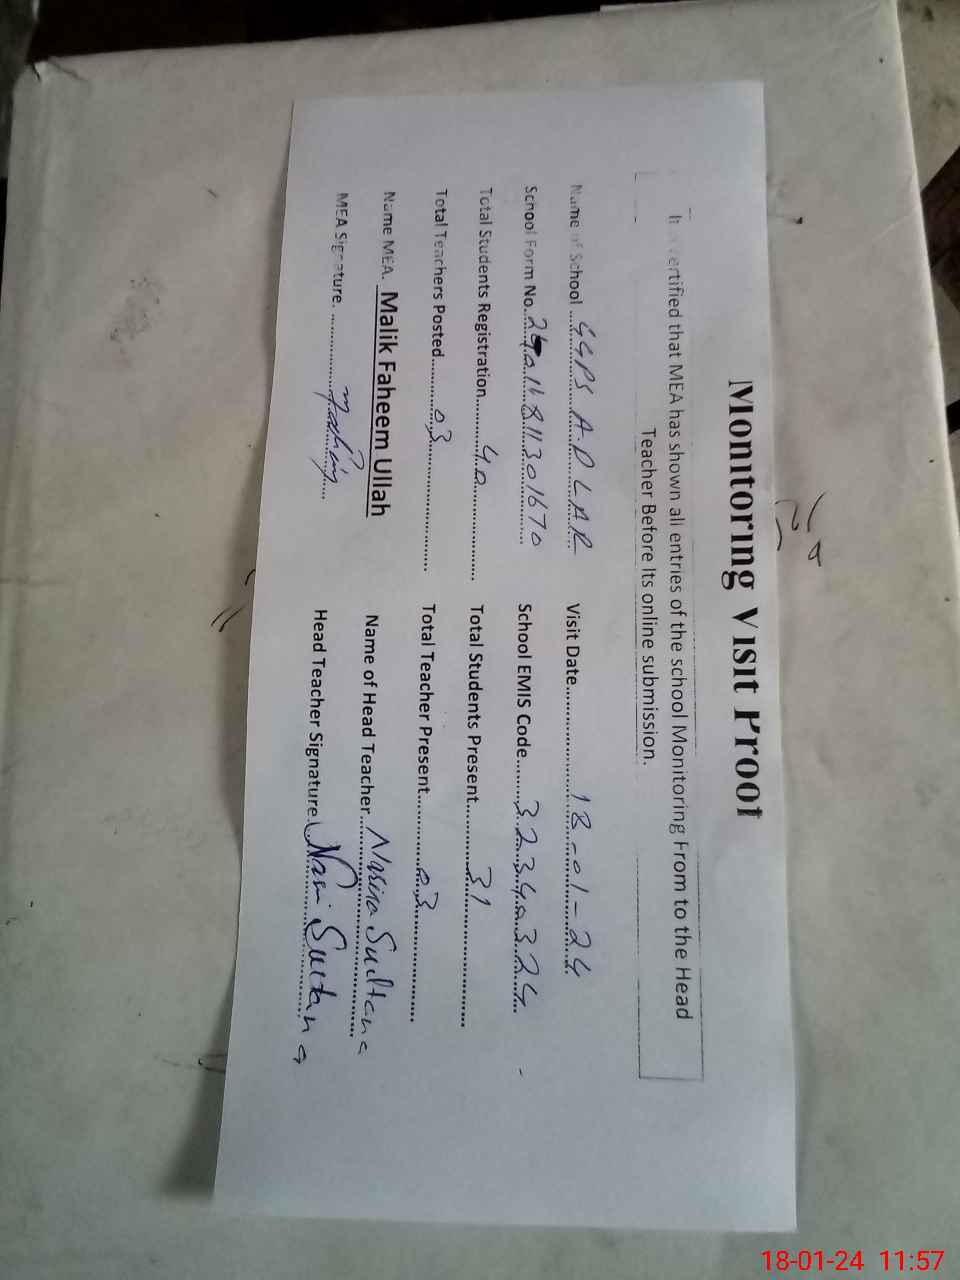 Monitoring Visit Proof
It is certified that MEA has shown all entries of the school Monitoring From to the Head
Teacher Before Its online submission.
Name of School ....GGPS A.P LAR.... Visit Date....18-01-24
School Form No. School EMIS Code....32340324
Total Students Registration....40.... Total Students Present....31....
Total Teachers Posted....03.... Total Teacher Present....03....
Name MEA. Malik Faheem Ullah Name of Head Teacher....Nasira Sultana
MEA Signature. ....Fahim.... Head Teacher Signature. Sultana
18-01-24 11:57